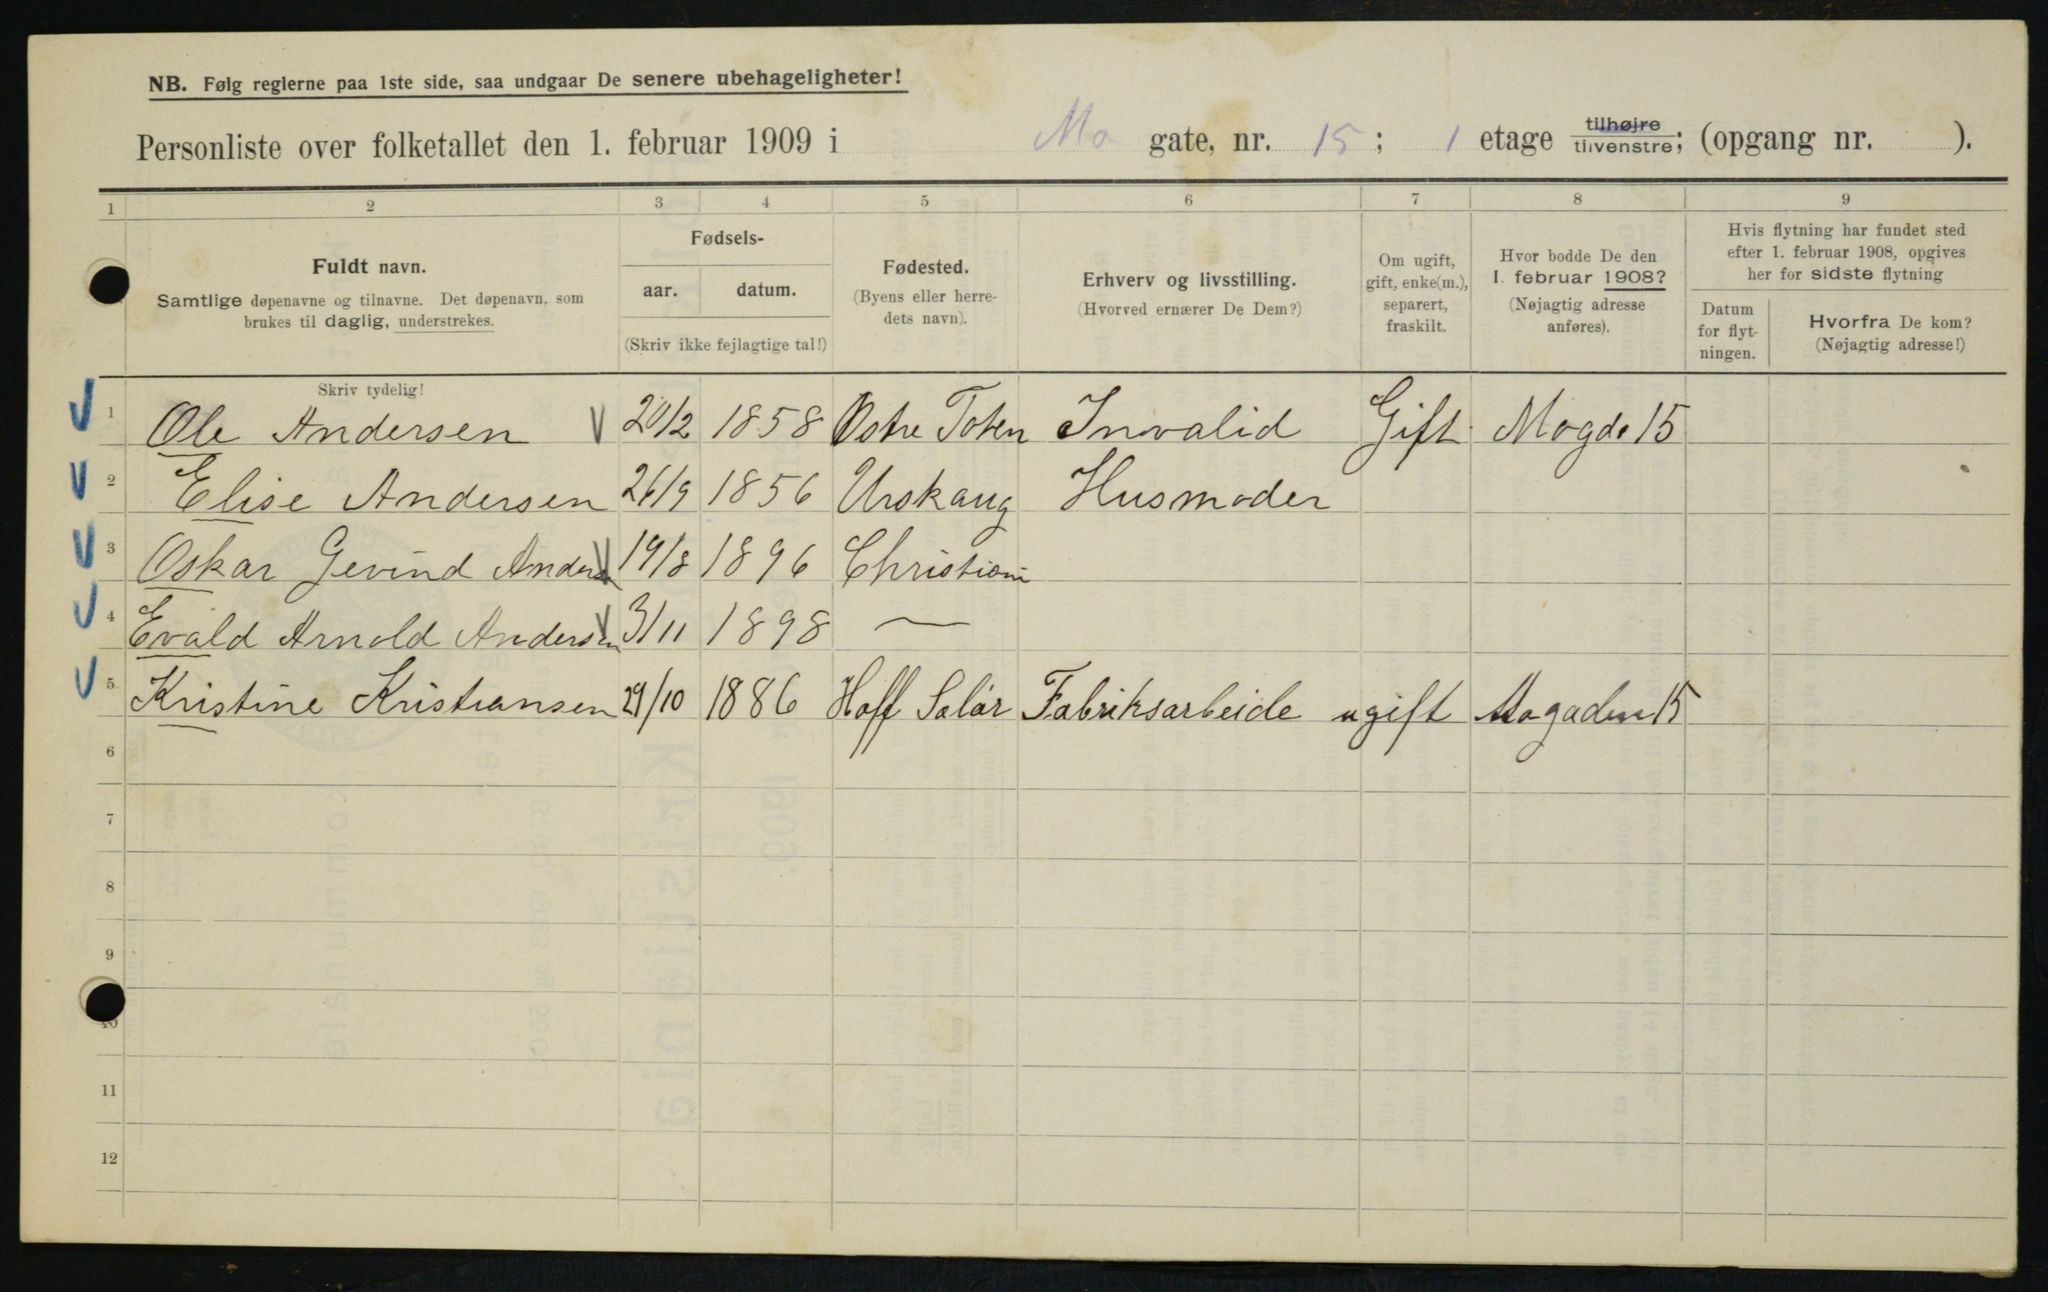 NB. Følg reglerne paa 1ste side, saa undgaar De senere ubehageligheter!
Personliste over folketallet den 1. februar 1909 i Mo gate, nr. 15; 1 etage tilhøjre tilvenstre; (opgang nr. ).
1 2 3 4 5 6 7 8 9
Fuldt navn.
Samtlige døpenavne og tilnavne. Det døpenavn, som
brukes til daglig, understrekes.
Fødsels-
aar. datum.
(Skriv ikke fejlagtige tal!)
Fødested.
(Byens eller herre-
dets navn).
Erhverv og livsstilling.
(Hvorved ernærer De Dem?)
Om ugift,
gift, enke(m.),
separert,
fraskilt.
Hvor bodde De den
1. februar 1908?
(Nøjagtig adresse
anføres).
Hvis flytning har fundet sted
efter 1. februar 1908, opgives
her for sidste flytning
Datum
for flyt-
ningen.
Hvorfra De kom?
(Nøjagtig adresse!)
Skriv tydelig!
1 Ole Andersen 20/2 1858 Østre Toten Invalid Gift Mogd. 15
2 Elise Andersen 26/9 1856 Urskaug Husmoder
3 Oskar Gevind Andersen 19/8 1896 Christiani
4 Evald Arnold Andersen 3/11 1898 —
5 Kristine Kristiansen 29/10 1886 Hoff Solør Fabriksarbeide ugift Mogaden 15
6
7
8
9
10
11
12